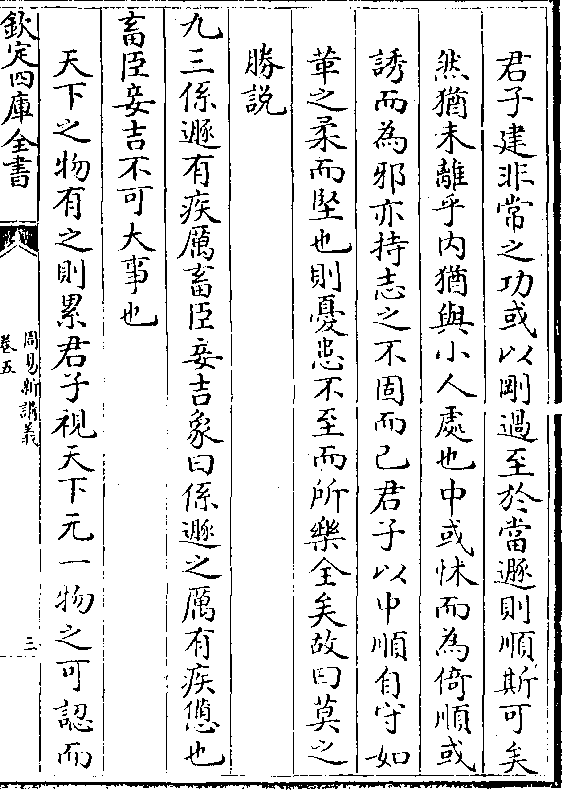 君子建非常之功或以剛過至於當遯則順斯可矣
然猶未離乎内猶與小人處也中或怵而為倚順或
誘而為邪亦持志之不固而已君子以中順自守如
革之柔而堅也則憂患不至而所樂全矣故曰莫之
勝説
九三係遯有疾厲畜臣妾吉象曰係遯之厲有疾憊也
畜臣妾吉不可大事也
天下之物有之則累君子視天下无一物之可認而
欽定四庫全書
周易新講義
卷五
三